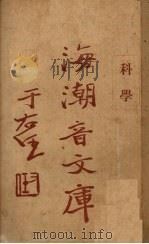 科學
海潮音文庫
于右任